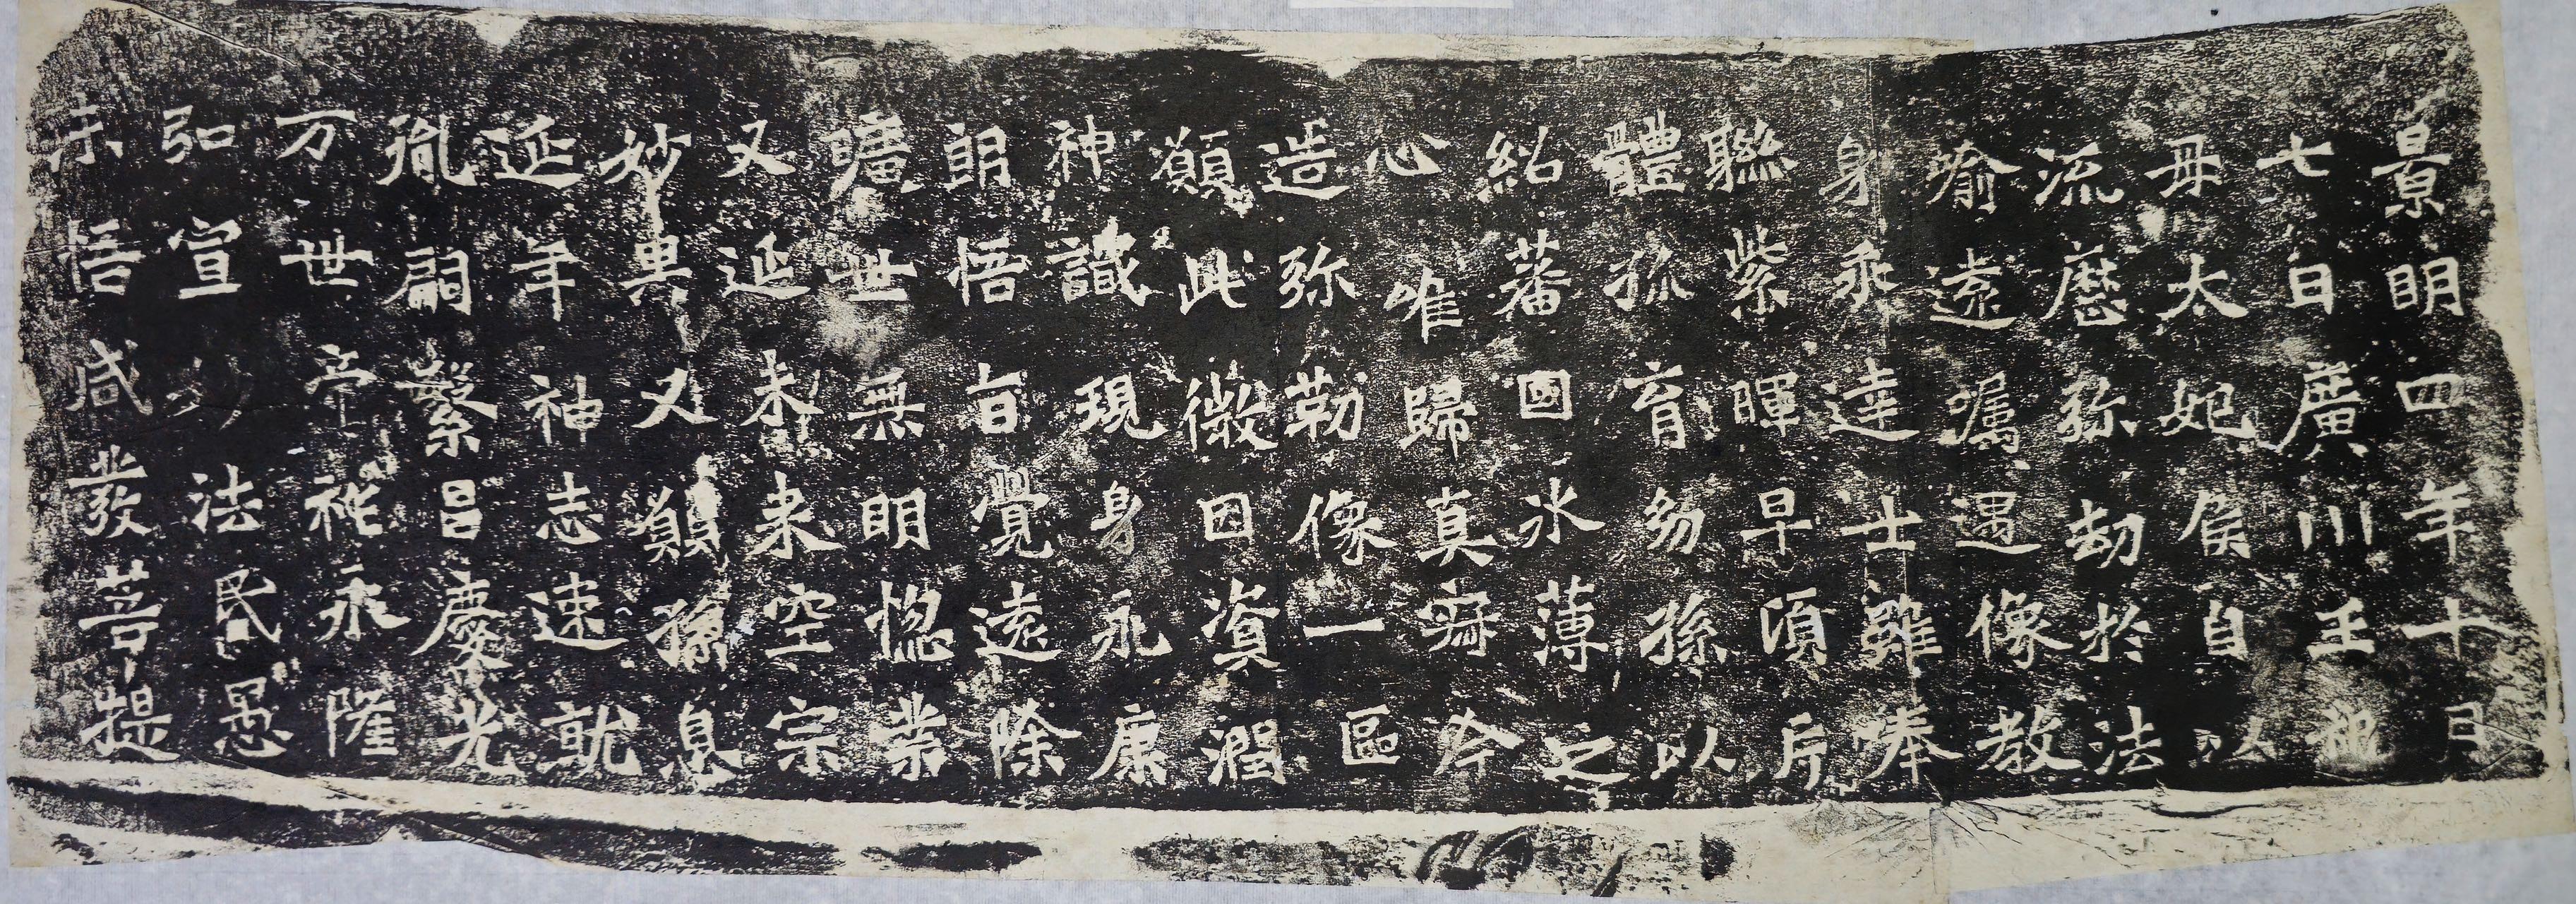 景明四年十月
七日廣川王祖
母太妃侯自以
流歷弥劫於法
喻遠囑遇像教
身乖達士雖奉
聯紫暉早頃片
體孤育幼孫以
紹蕃國冰薄之
心唯歸真寂今
造弥勒像一區
願此微因資潤
神識現身永康
朗悟旨覺遠除
曠世無明惚業
又延未来空宗
妙果又願孫息
延年神志速就
胤嗣繁昌慶光
万世帝祚永隆
弘宣妙法昆愚
未悟咸發菩提